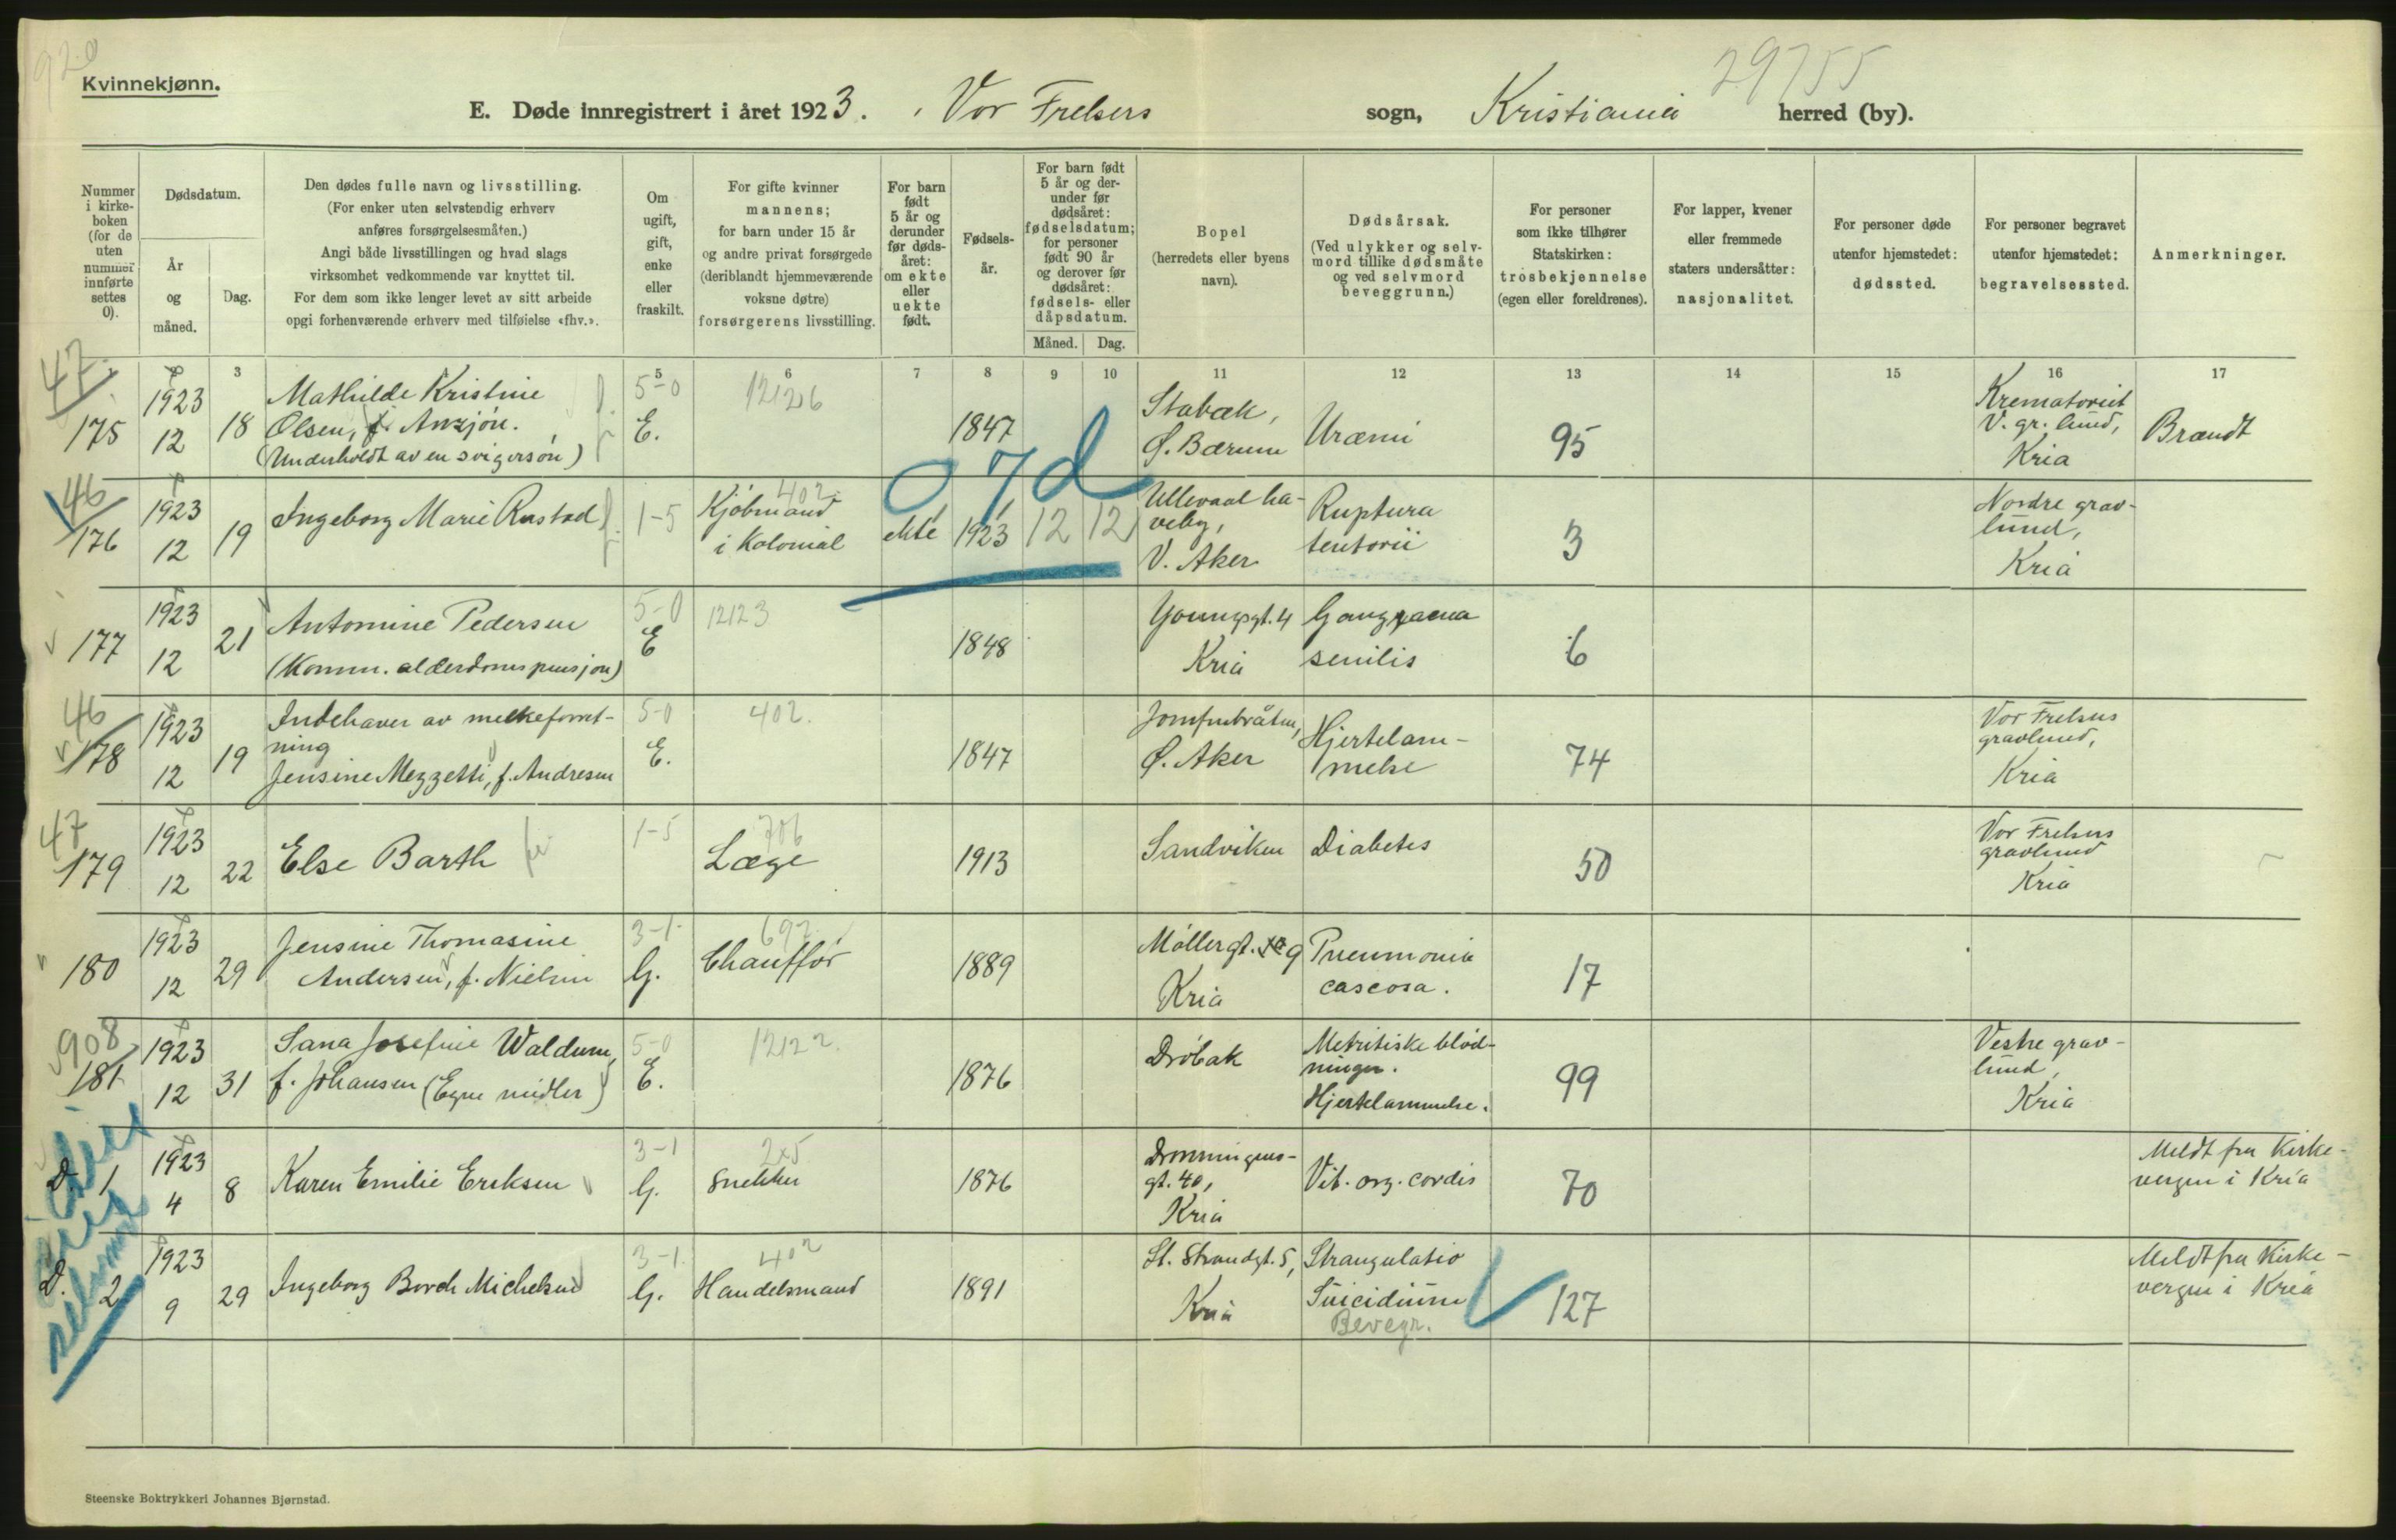 920
Kvinnekjønn.
29755
E. Døde innregistrert i året 1923. Vor Frelsers sogn, Kristiania herred (by).
Nummer i kirke-boken (for de uten nummer innførte settes 0).
Dødsdatum.
År og måned.
Dag.
Den dødes fulle navn og livsstilling.
(For enker uten selvstendig erhverv
anføres forsørgelsesmåten.)
Angi både livsstillingen og hvad slags
virksomhet vedkommende var knyttet til.
For dem som ikke lenger levet av sitt arbeide
opgi forhenværende erhverv med tilføielse «fhv.».
Om
ugift,
gift,
enke
eller
fraskilt.
For gifte kvinner
mannens;
for barn under 15 år
og andre privat forsørgede
(deriblandt hjemmeværende
voksne døtre)
forsørgerens livsstilling.
For barn
født
5 år og
derunder
før døds-
året:
om ekte
eller
uekte
født.
Fødsels-
år.
For barn født
5 år og der-
under før
dødsåret:
fødselsdatum;
for personer
født 90 år
og derover før
dødsåret:
fødsels- eller
dåpsdatum.
Måned.
Dag.
Bopel
(herredets eller byens
navn).
Dødsårsak.
(Ved ulykker og selv-
mord tillike dødsmåte
og ved selvmord
beveggrunn.)
For personer
som ikke tilhører
Statskirken:
trosbekjennelse
(egen eller foreldrenes).
For lapper, kvener
eller fremmede
staters undersåtter:
nasjonalitet.
For personer døde
utenfor hjemstedet:
dødssted.
For personer begravet
utenfor hjemstedet:
begravelsessted.
Anmerkninger.
3 5 6 7 8 9 10 11 12 13 14 15 16 17
47
175
1923
12
18
Mathilde Kristine
Olsen, f. Anzjøn.
(Underholdt av en svigersøn)
5-0
E.
12126
1847
Stabæk,
Ø. Bærum
Uræmi
95
Krematoriet
V. gr. lund,
Kria
Brandt
46
176
1923
12
19
Ingeborg Marie Rustad
1-5
402
Kjøbmand
i Kolonial
ekte
07d
1923
12
12
Ullevaal ha-
veby,
V. Aker
Ruptura
tentorii
3
Nordre grav-
lund,
Kria
177
1923
12
21
Antomine Pedersen
(Komm. alderdomspensjon)
5-0
E
12123
1848
Youngsgt. 4
Kria
Gangraena
senilis
6
46
178
1923
12
19
Indehaver av melkeforret-
ning
Jensine Mezzetti, f. Andresen
5-0
E.
402.
1847
Jomfrubråten,
Ø. Aker
Hjertelam-
melse
74
Vor Frelsers
gravlund,
Kria
47
179
1923
12
22
Else Barth
1-5
706
Læge
1913
Sandviken
Diabetes
50
Vor Frelsers
gravlund
Kria
180
1923
12
29
Jensine Thomasine
Andersen, f. Nielsen
3-1
G.
692
Chauffør
1889
Møllergt. 9
Kria
Pneumonia
caseosa.
17
908
181
1923
12
31
Sana Josefine Waldum,
f. Johansen (Egne midler)
5-0
E.
12122.
1876
Drøbak
Metritiske blød-
ninger.
Hjertelammelse.
99
Vestre grav-
lund,
Kria
D. 1
1923
4
8
Karen Emilie Eriksen
3-1
G.
Snekker
1876
Dronningens-
gt. 40,
Kria
Vit. org. cordis
70
Meldt fra Kirke-
vergen i Kria
selvmord
D. 2
1923
9
29
Ingeborg Borch Michelsen
3-1.
G.
402
Handelsmand
1891
St. Strandgt. 5,
Kria
Strangulatio
Suicidium
Bevegr.
127
Meldt fra Kirke-
vergen i Kria
Steenske Boktrykkeri Johannes Bjørnstad.